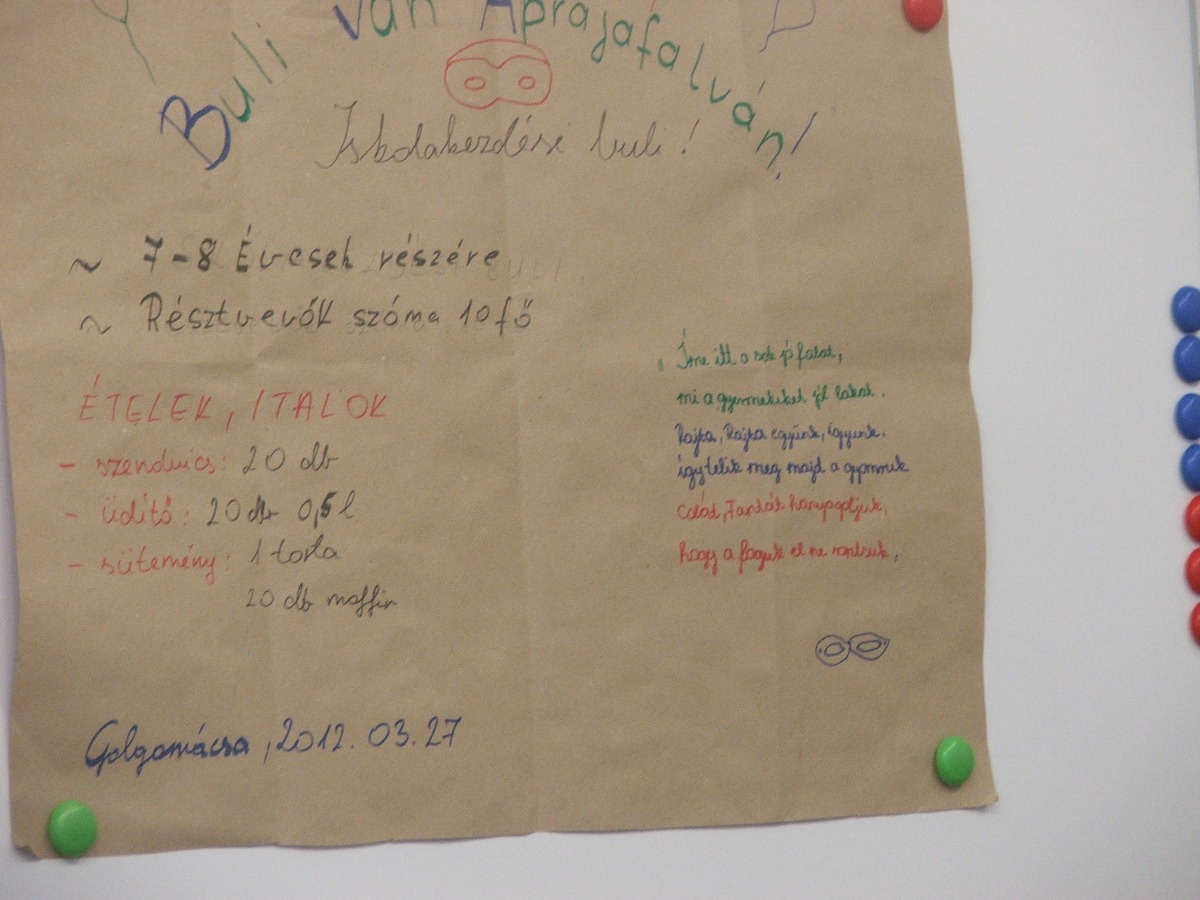 Buli van Aprajafalván!
Iskolakezdési buli!
~ 7-8 Évesek részére
~ Résztvevők száma 10 fő
ÉTELEK, ITALOK
- szendvics: 20 db
- üdítő: 20 db 0,5 l
- sütemény: 1 torta
20 db maffin
"Íme itt a sok jó falat,
mi a gyermekeket jól lakat.
Rajta, Rajta együnk, igyunk.
így telik meg majd a gyomruk
Colát, Fantát hanyagoljuk,
hogy a foguk el ne rontsuk.
Galgamácsa, 2012. 03. 27